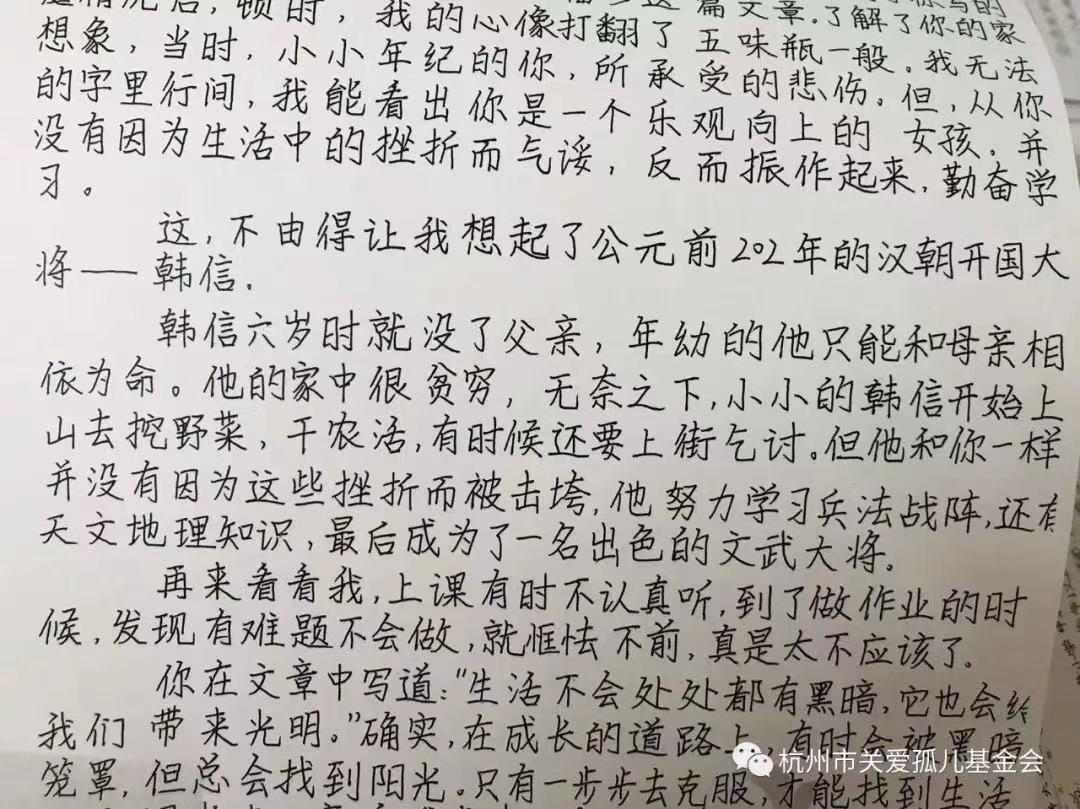 这篇文章.了解了你的家
后,顿时,我的心像打翻了五味瓶一般。我无法
想象,当时,小小年纪的你,所承受的悲伤。但,从你
的字里行间,我能看出你是一个乐观向上的女孩。并
没有因为生活中的挫折而气诿,反而振作起来,勤奋学
习。
这,不由得让我想起了公元前202年的汉朝开国大
将——韩信.
韩信六岁时就没了父亲,年幼的他只能和母亲相
依为命。他的家中很贫穷,无奈之下,小小的韩信开始上
山去挖野菜,干农活,有时候还要上街乞讨。但他和你一样
并没有因为这些挫折而被击垮,他努力学习兵法战阵,还有
天文地理知识,最后成为了一名出色的文武大将。
再来看看我,上课有时不认真听,到了做作业的时
候,发现有难题不会做,就恇怯不前,真是太不应该了。
你在文章中写道:“生活不会处处都有黑暗,它也会给
我们带来光明。”确实,在成长的道路上,有时会被黑暗
笼罩,但总会找到阳光。只有一步步去克服,才能找到生活
杭州市关爱孤儿基金会